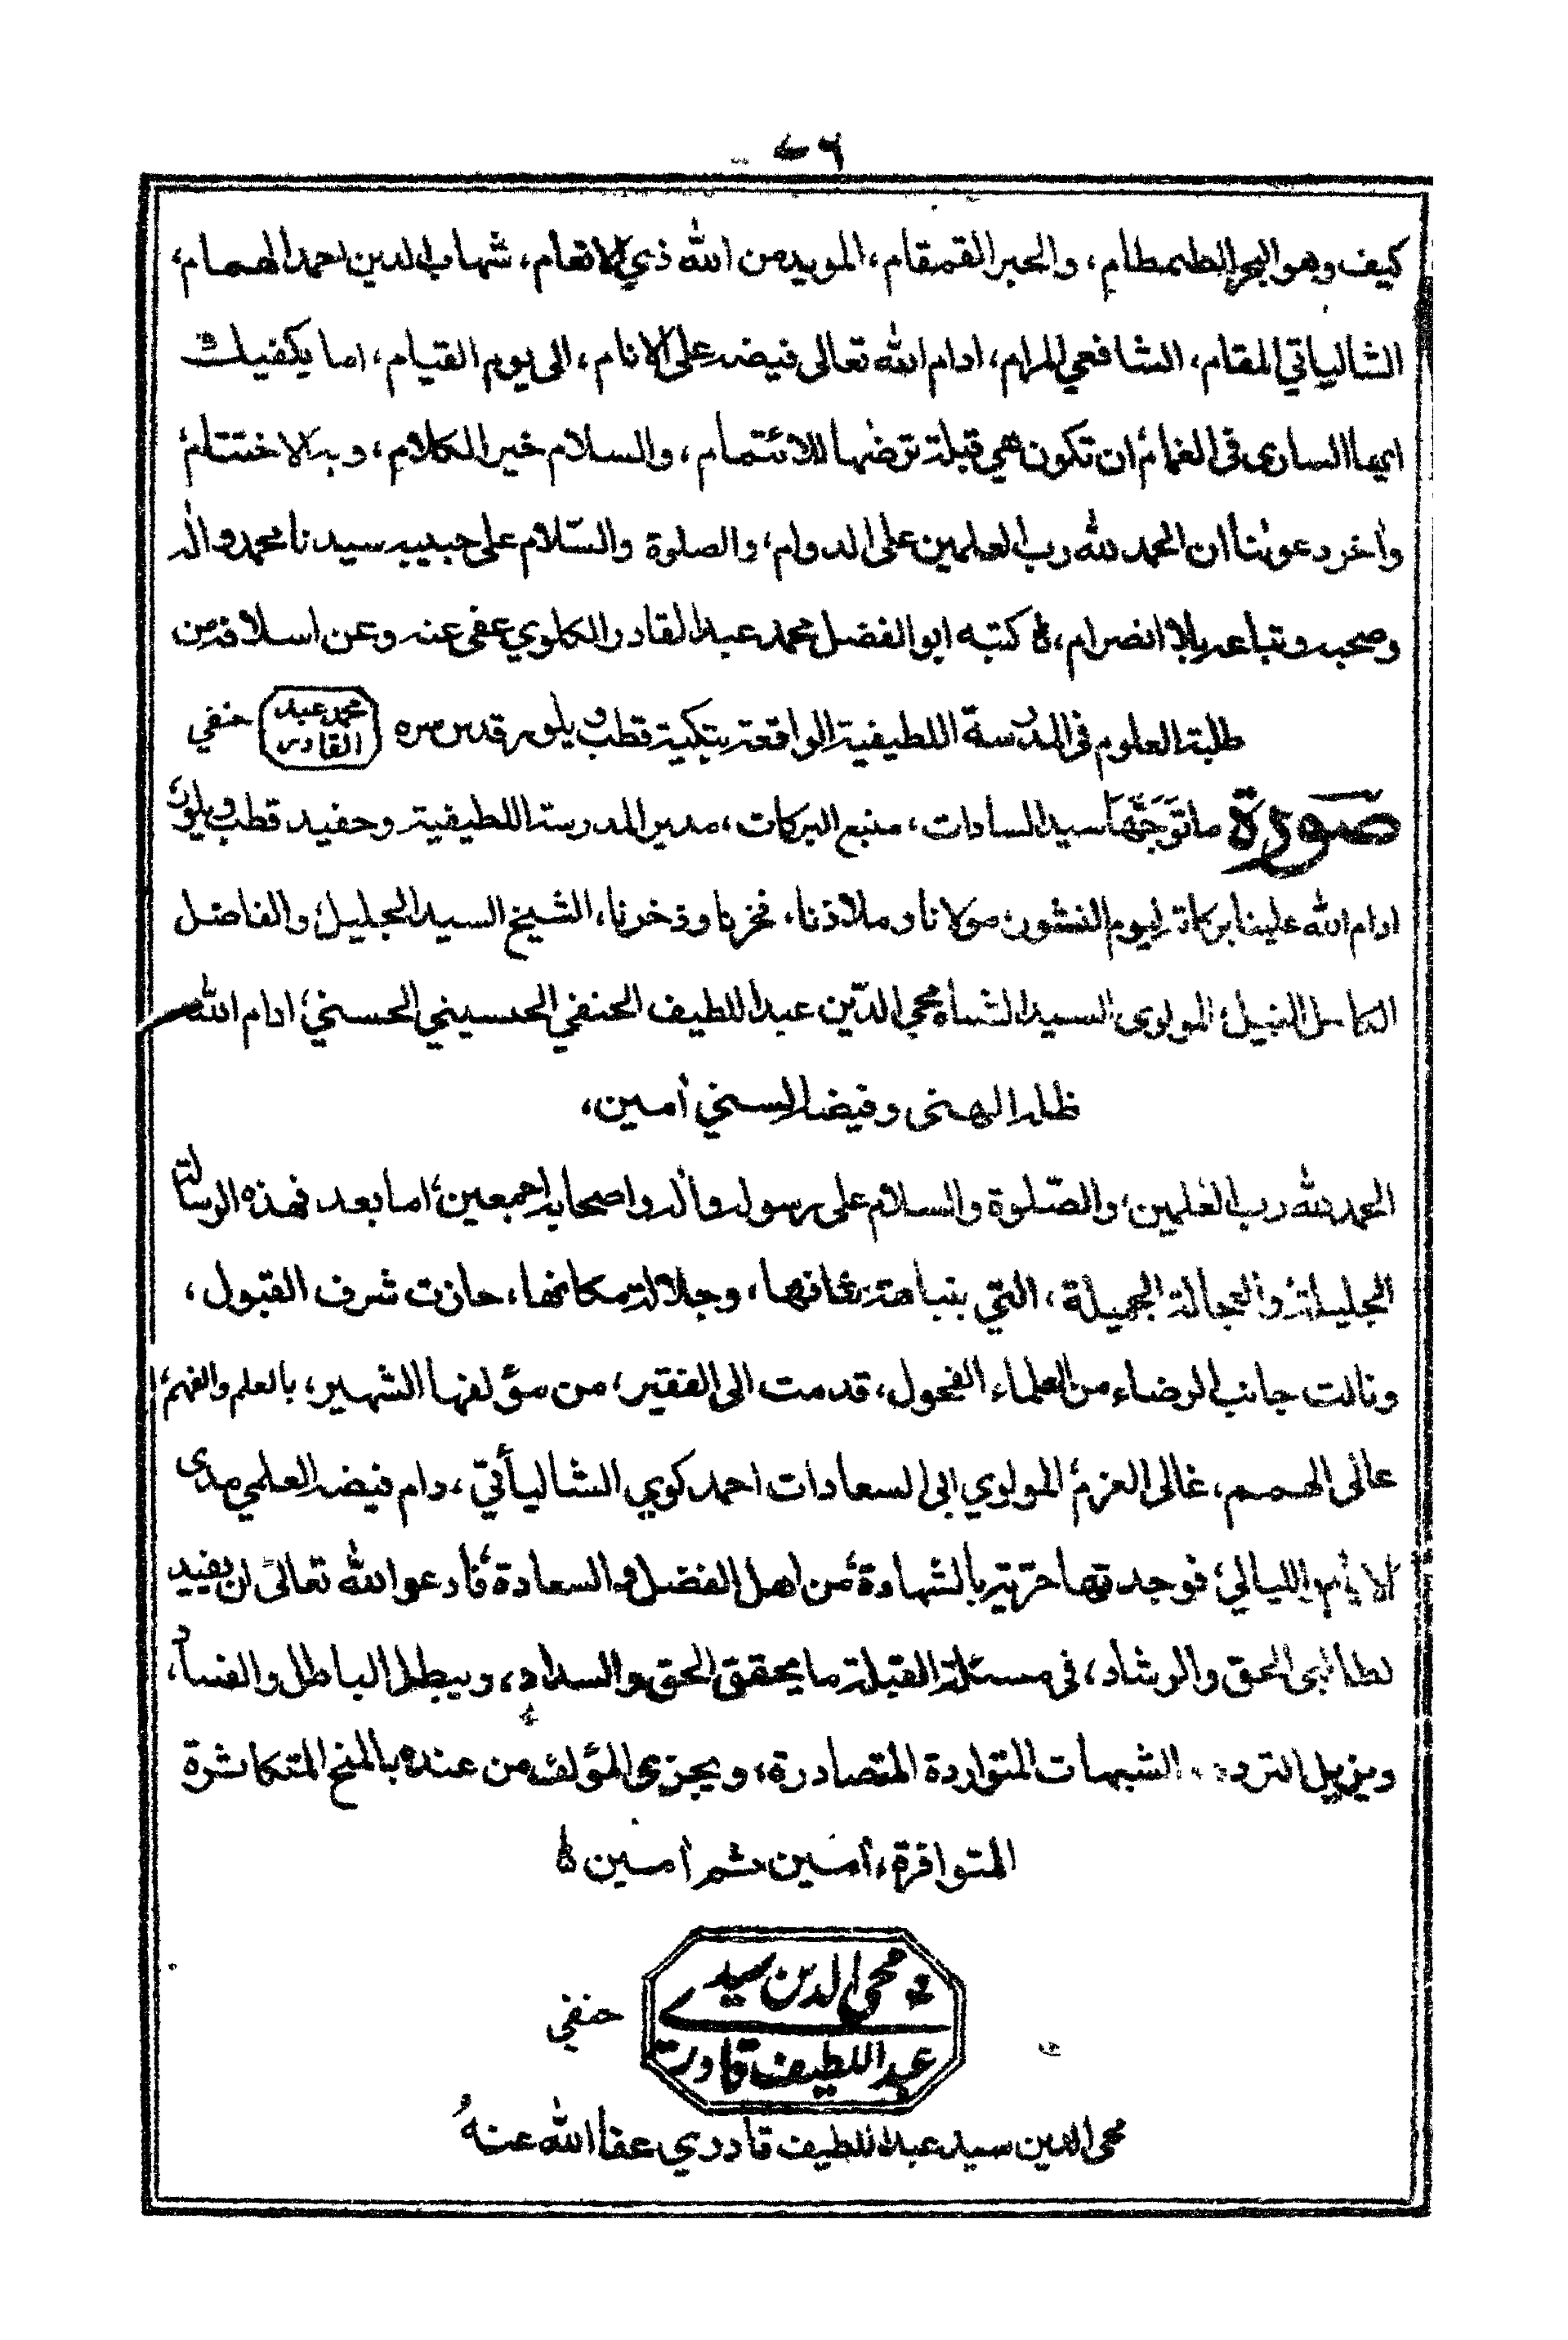 ٤٦
كيف وهو البحر الطمطام، والحبر القمقام، المويد من الله ذي الانعام، شهاب الدين احمد الهمام،
الشالياتي المقام، الشافعي المرام، ادام الله تعالى فيضه على الانام، الى يوم القيام، اما يكفيك
ايها السارى فى الغمائم ان تكون هي قبلة ترضها للائتمام، والسلام خير الكلام، وبه الاختتام
وأخر دعوٰنا ان الحمد لله رب العلمين على الدوام، والصلوة والسّلام على حبيبه سيدنا محمد واله
وصحبه وتباعه بلا انصرام، كتبه ابو الفضل محمد عبد القادر الكلوي عفى عنه وعن اسلافه من
طلبة العلوم فى المدرسة اللطيفية الواقعة بتكية قطب ويلور قدس سره
محمد عبد
القادر
حنفي
صورة ما توجهها سيد السادات، منبع البركات، مدير المدرسة اللطيفية وحفيد قطب ويلور
ادام الله علينا بركاته ليوم النشور، مولانا وملاذنا، فخرنا وذخرنا، الشيخ السيد الجليل، والفاضل
الكامل النبيل، المولوى السيد الشاه محي الدّين عبد اللطيف الحنفي الحسيني الحسني، ادام الله
ظله الهنى وفيضه السني أمين،
الحمد لله رب العلمين، والصّلوة والسلام على رسوله وأله واصحابه اجمعين، اما بعد فهذه الرسالة
الجليلة، والعجالة الجميلة، التي بنباهة شانها، وجلالة مكانها، حازت شرف القبول،
ونالت جانب الرضاء من العلماء الفحول، قدمت الى الفقير، من مؤلفها الشهير، بالعلم والفهم،
عالى الهمم، غالى العزم، المولوي ابى السعادات احمد كوي الشاليأتي، دام فيضه العلمي مدى
الايام والليالي، فوجدتها حرّية بالشهادة، من اهل الفضل والسعادة، فأدعو الله تعالى ان يفيد
لطالبى الحق والرشاد، فى مسئلة القبلة ما يحقق الحق والسداد، ويبطل الباطل والفساد،
ويزيل الترد الشبهات المتواردة المتصادرة، ويجزى المؤلف من عنده بالمنح المتكاثرة
المتوافرة، أمين ثم أمين
محي الدين سيد
عبد اللطيف قادري
حنفي
محى الدين سيد عبد اللطيف قادري عفا الله عنهُ